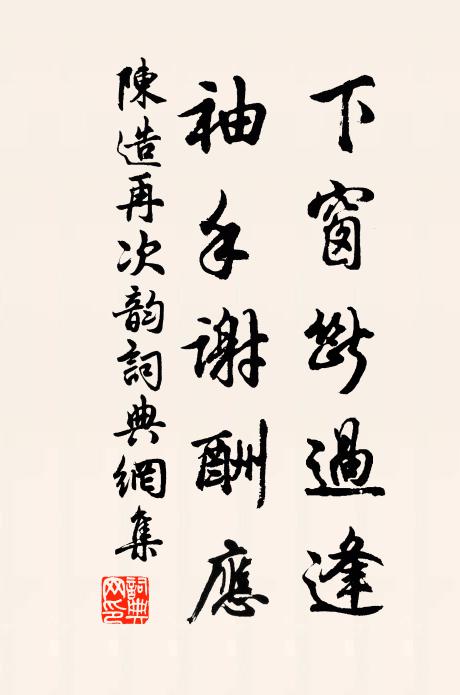 下窗斷過逢
袖手謝酬應
陳造再次韵詞典網集
詞典網印